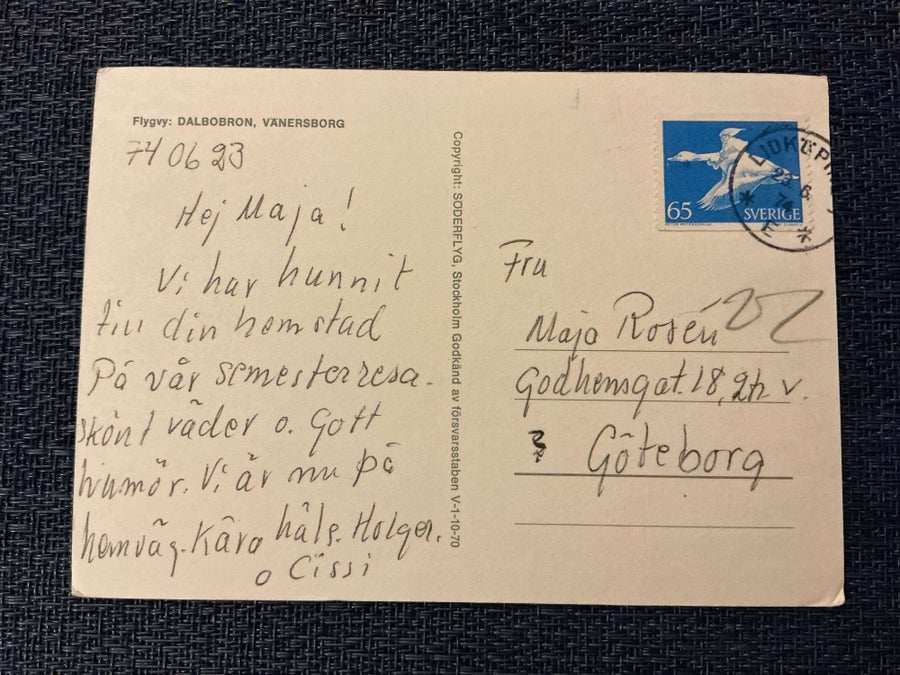 Flygvy: DALBOBRON, VÄNERSBORG
74 06 23
Hej Maja!
Vi har hunnit
till din hemstad
På vår semesterresa.
skönt väder o. Gott
humör. Vi är nu på
hemväg. Kära häls. Holger.
o Cissi
Copyright: SÖDERFLYG, Stockholm Godkänd av försvarsstaben V-1-10-70
65 SVERIGE
LIDKÖPIN
23 6
74
E
Fru
Maja Rosén
Godhemsgat. 18, 2tr. v.
Göteborg